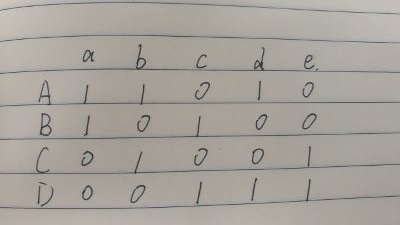 a b c d e.
A 1 1 0 1 0
B 1 0 1 0 0
C 0 1 0 0 1
D 0 0 1 1 1